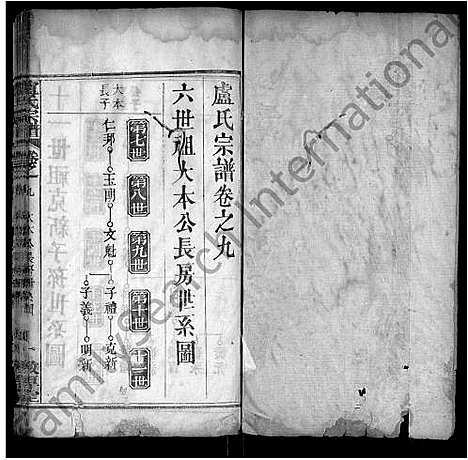 盧氏宗譜卷之九
六世祖大本公長房世系圖
第七世 第八世 第九世 第十世 十一世
大本長子
仁邦 玉剛 文魁 子禮 克新
子義 明新
盧氏宗譜 卷之九
十一世祖克新子孫世系圖
FamilySearch International